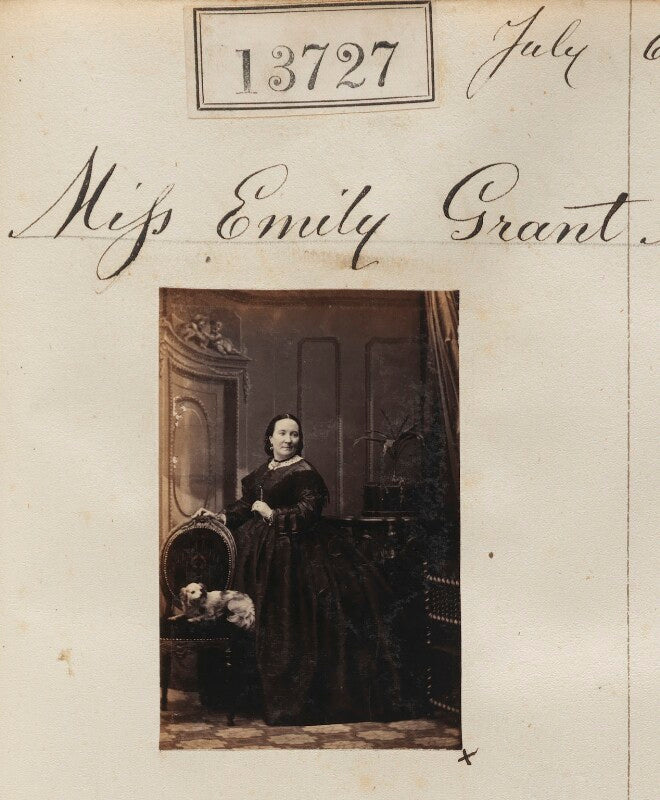 13727
July 6
Miss Emily Grant.
x